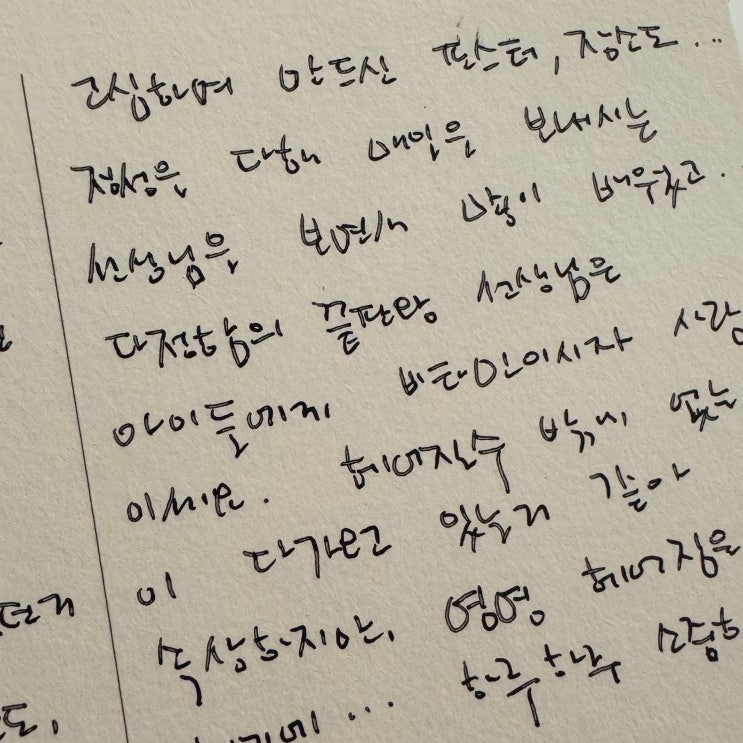 고심하며 만드신 포스터, 장소도...
정성을 다해 매일을 보내시는
선생님을 보면서 많이 배우었고.
다정함의 끝판왕 선생님은
아이들에게 비타민이시자 사랑
이세요. 헤어질수 밖에 없는
이 다가오고 있는거 같아
속상하지만, 영영 헤어짐을
하루하루 소중히